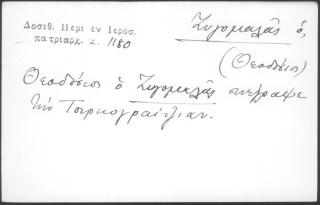 Δοσιθ. Περι εν Ιεροσ.
πατριαρχ. σ. 1180
Ζυγομαλᾶς ὁ,
(Θεοδόσιος)
Θεοδόσιος ὁ Ζυγομαλᾶς συνέγραψε
τὴν Τουρκογραικίαν.